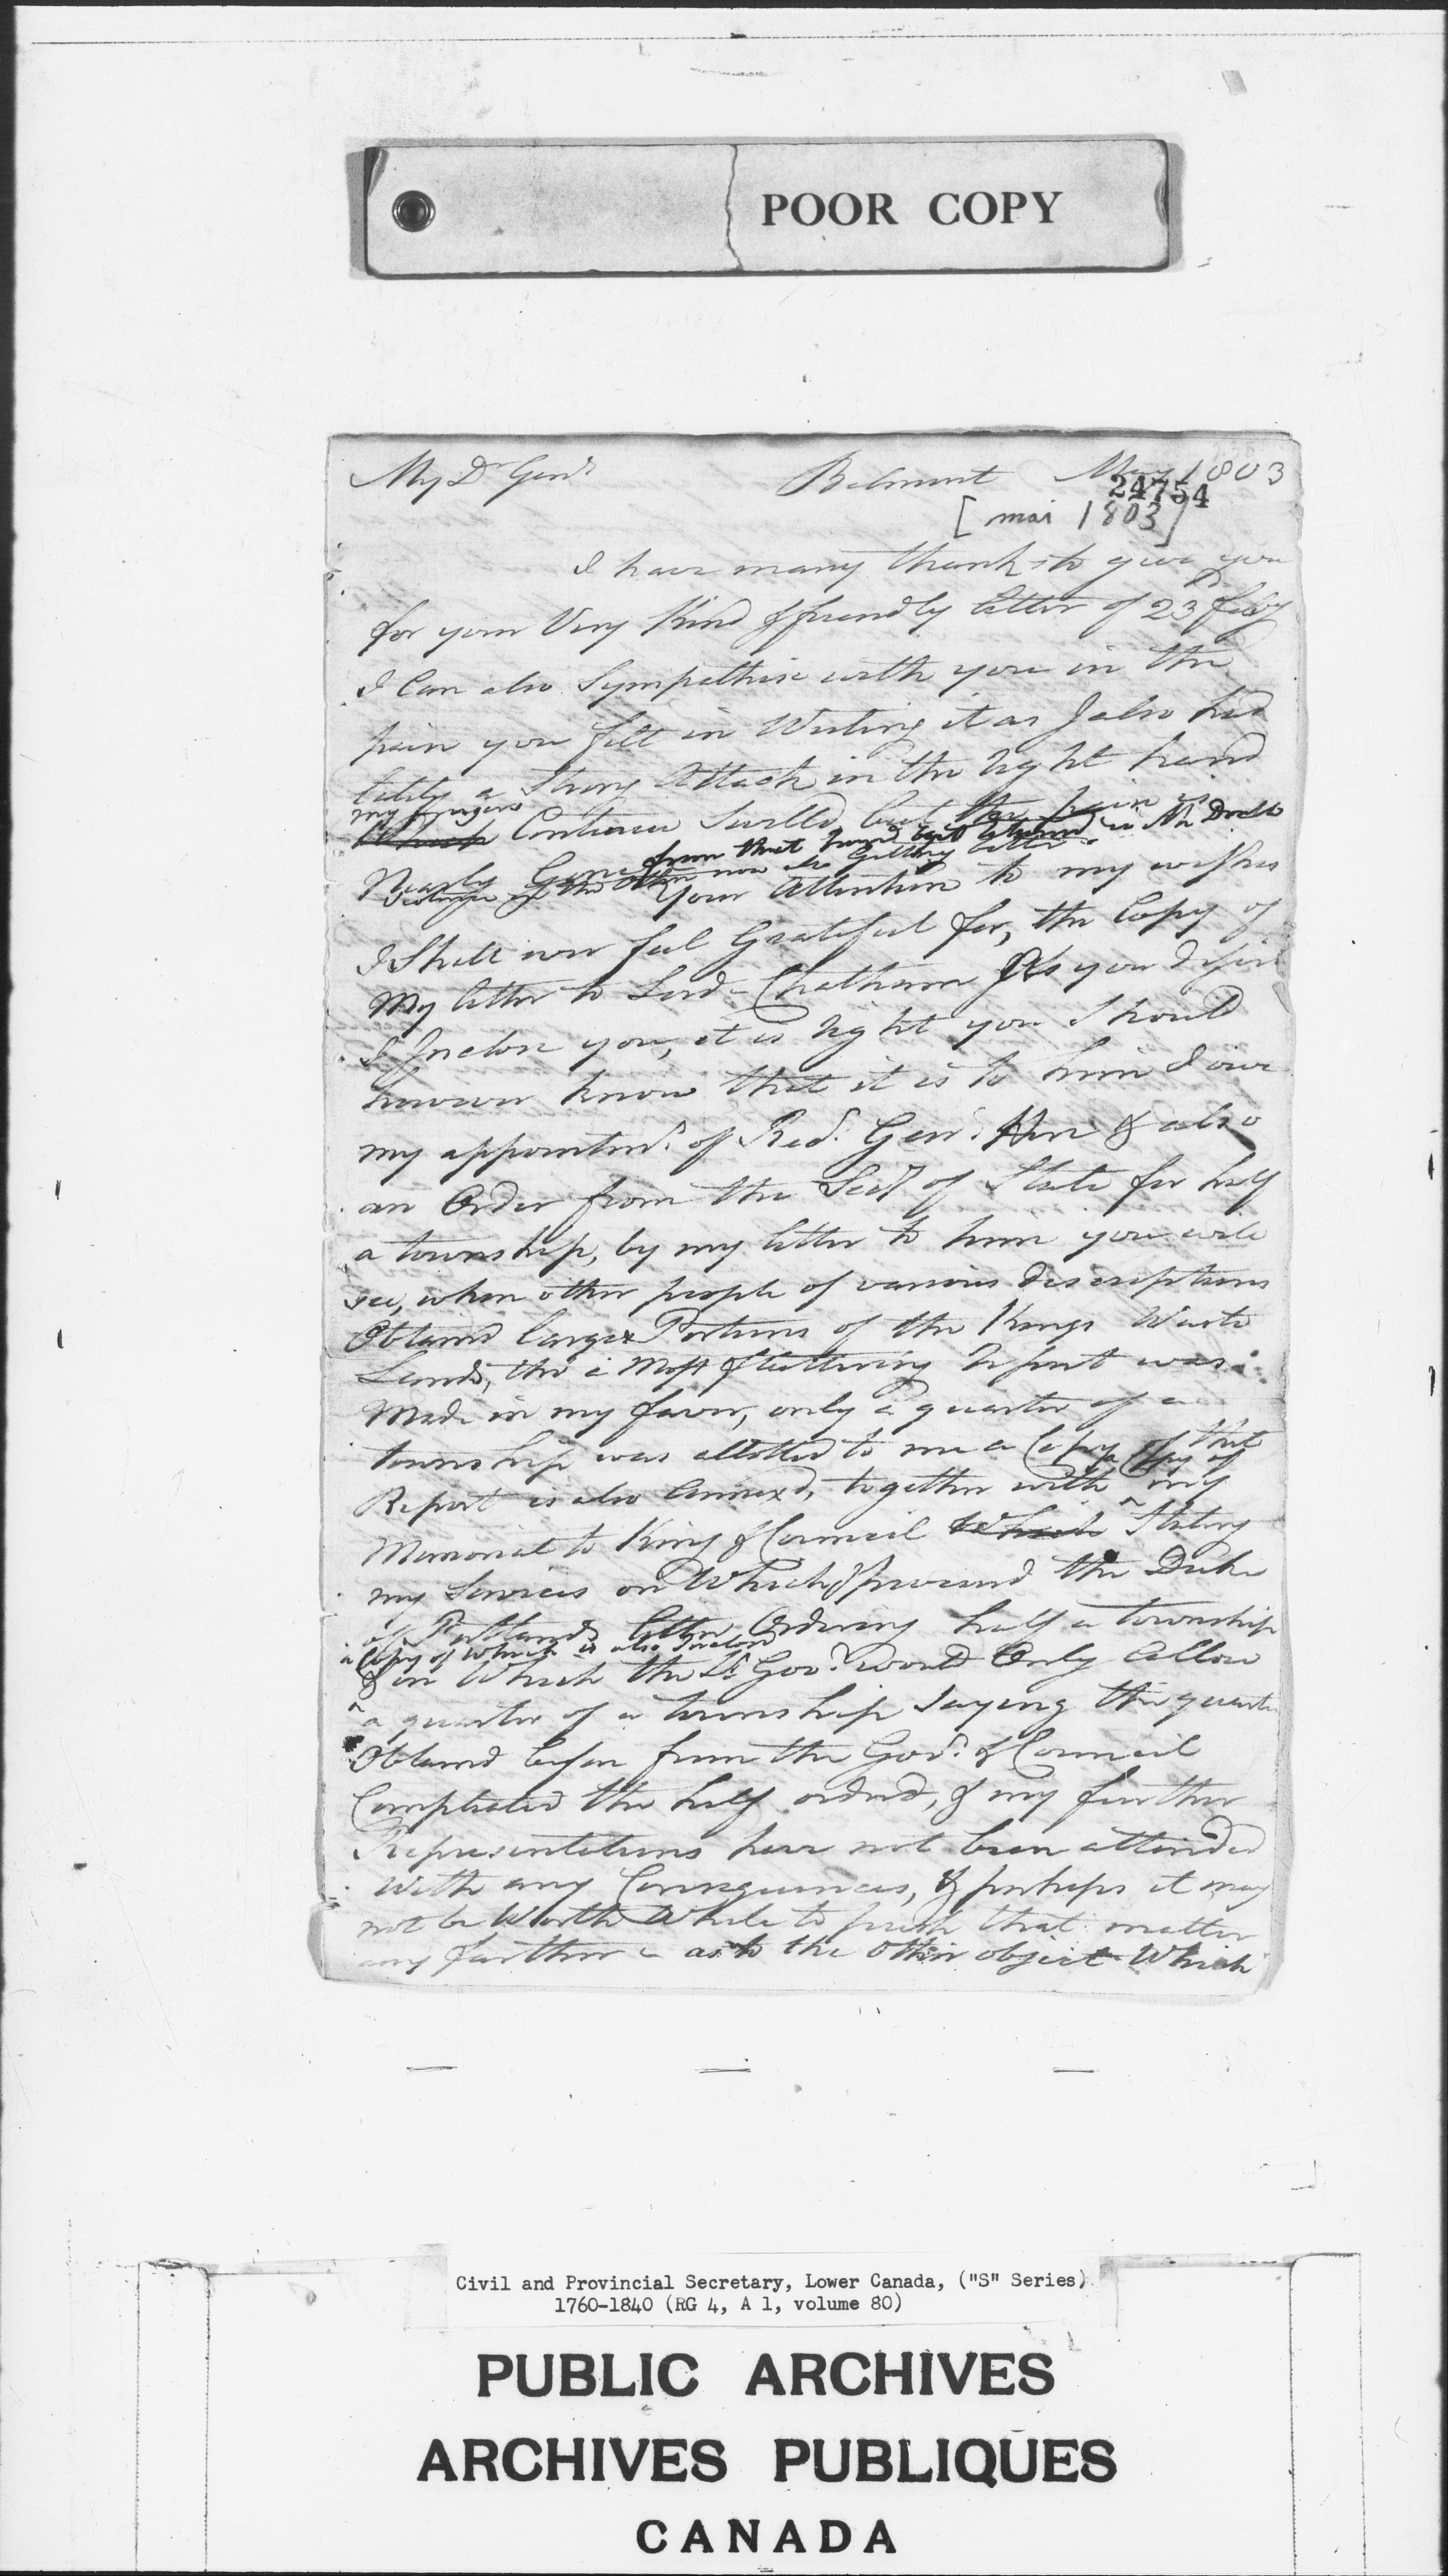 POOR COPY
My Dr Genl
Belmont May 1803
24754
[mai 1803]
I have many thanks to give you
for your Very Kind & friendly letter of 23 feby
I Can also Sympathise with you in the
pain you felt in Writing it as I also had
lately a Strong Attack in the right hand
my fingers
Which Continue Swelled but the pain is
Nearly Gone from that hand but
of the other now also Getting better.
Your Attention to my wishes
I Shall ever feel Gratefull for, the Copy of
My letter to Lord Chatham As you desire
I Inclose you, it is right you Should
however know that it is to him I owe
my appointmt. of Recr. Genl. here & also
an Order from the Secy of State for half
a township, by my letter to him you will
see, when other people of various descriptions
Obtained larger Portions of the Kings Waste
Lands, tho a Most flattering Report was
Made in my favor, only a quarter of a
township was allotted to me a Copy of that
Report is also Annexed, together with a Copy of my
Memorial to King & Council Which Stating
my Services on Which I procured the Duke
of Portlands letter Ordering half a township
a Copy of Which is also Inclosed
& on Which the Lt Govr. would Only Allow
a quarter of a township Saying the quarter
Obtained before from the Govr. & Council
Compleated the half ordered, & my further
Representations have not been attended
with any Consequences, & perhaps it may
not be Worth While to push that matter
any farther - as to the Other object Which
Civil and Provincial Secretary, Lower Canada, ("S" Series)
1760-1840 (RG 4, A 1, volume 80)
PUBLIC ARCHIVES
ARCHIVES PUBLIQUES
CANADA